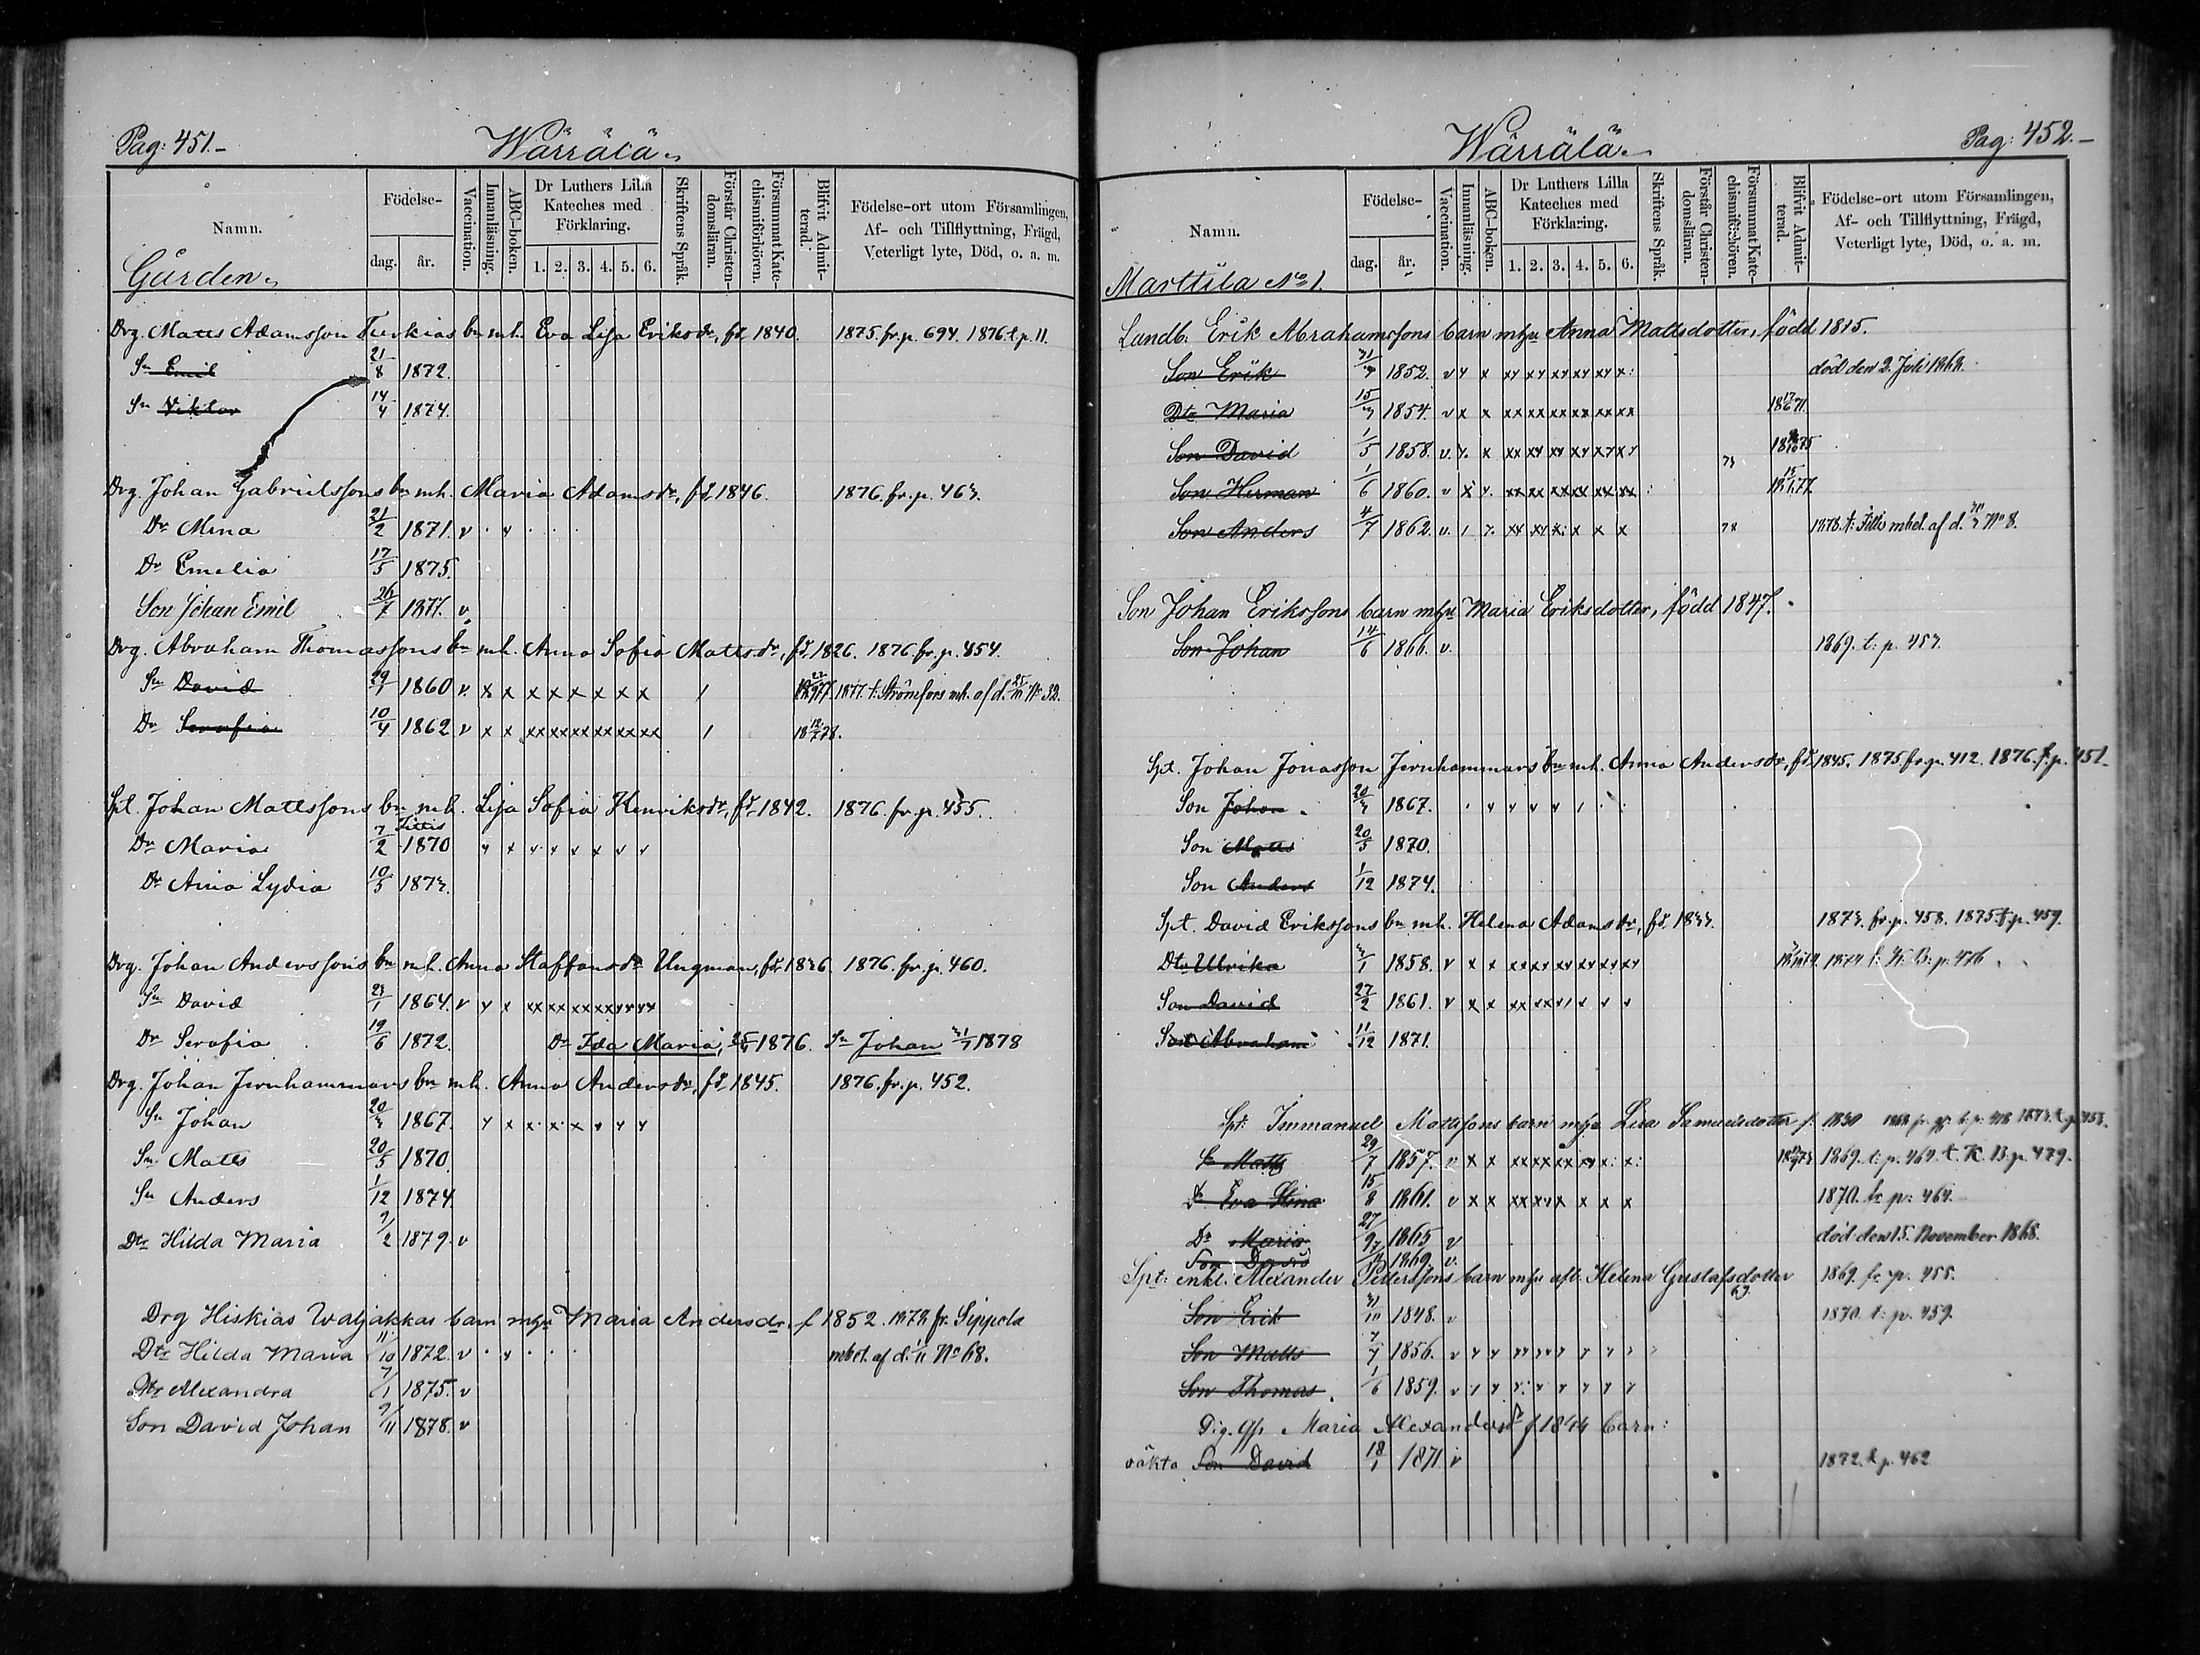 Pag: 451.-
Wärrälä.
Namn.
Födelse-
dag.
år.
Vaccination.
Innanläsning.
ABC-boken.
Dr Luthers Lilla Kateches med Förklaring.
1. 2. 3. 4. 5. 6.
Skriftens Språk.
Förstår Christendomsläran.
Försummat Katechismiförhören.
Blifvit Admitterad.
Födelse-ort utom Församlingen, Af- och Tillflyttning, Frägd, Veterligt lyte, Död, o. a. m.
Gården.
Drg. Matts Adamsson Turkias bn mh. Eva Lisa Eriksdr, fd 1840. 1875. fr. p. 694. 1876. t. p. 11.
Sn Emil 21/8 1872.
Sn Viktor 14/4 1874.
Drg. Johan Gabrielssons bn mh. Maria Adamsdr, fd 1846. 1876. fr. p. 463.
Dr Mina 21/2 1871. v
Dr Emelia 17/5 1875.
Son Johan Emil 26/7 1877. v
Drg. Abraham Thomassons bn mh. Anna Sofia Mattsdr, fd 1826. 1876. fr. p. 454.
Sn David 1860 v. x x x x x x x x 1 1877. t. Strömfors mb. af d. 25/11 No 32.
Dr Serafia 10/4 1862 v x x xx xx xx xx xx xx 1
Spt. Johan Mattssons bn mh. Lisa Sofia Henriksdr, fd 1842. 1876. fr. p. 455.
Dr Maria 7/2 Fittis 1870
Dr Aina Lydia 10/5 1873.
Drg. Johan Anderssons bn mh. Anna Staffansdr Ungman, fd 1836. 1876. fr. p. 460.
Sn David 23/1 1864. v
Dr Serafia 19/6 1872. Dr Ida Maria, 1876. Sn Johan 31/1 1878
Drg. Johan Jernhammars bn mh. Anna Andersdr, fd 1845. 1876. fr. p. 452.
Sn Johan 20/3 1867.
Sn Matts 20/5 1870.
Sn Anders 1/12 1874.
Dtr Hilda Maria 9/2 1879. v
Drg Hiskias Waljakkas barn mhu Maria Andersdr, f 1852. 1879 fr. Sippola
Dtr Hilda Maria 11/10 1872. v mbet. af d. 1/11 No 68.
Dtr Alexandra 7/1 1875. v
Son David Johan 9/11 1878. v
Pag: 452.-
Wärrälä.
Namn.
Födelse-
dag.
år.
Vaccination.
Innanläsning.
ABC-boken.
Dr Luthers Lilla Kateches med Förklaring.
1. 2. 3. 4. 5. 6.
Skriftens Språk.
Förstår Christendomsläran.
Försummat Katechismiförhören.
Blifvit Admitterad.
Födelse-ort utom Församlingen, Af- och Tillflyttning, Frägd, Veterligt lyte, Död, o. a. m.
Marttila No 1.
Landb. Erik Abrahamssons barn mhu Anna Mattsdotter, född 1815.
Son Erik 1852. död den 2. Juli 1868.
Dtr Maria 15/3 1854.
Son David 1/5 1858.
Son Herman 1/6 1860.
Son Anders 4/7 1862. 78 1878. t. Fittis mbet. af d. No 8.
Son Johan Erikssons barn mhu Maria Eriksdotter, född 1847.
Son Johan 14/6 1866. v. 1869. t. p. 453.
Spt. Johan Jonasson Jernhammars bn mh. Anna Andersdr, fd 1845. 1875 fr. p. 412. 1876. t. p. 451.
Son Johan 20/3 1867.
Son Matts 20/5 1870.
Son Anders 1/12 1874.
Spt. David Erikssons bn mh. Helena Adamsdr, fd 1833. 1873. fr. p. 458. 1875 t. p. 459.
Dtr Ulrika 1858. v 1874 t. K. B. p. 476
Son David 27/2 1861. v
Son Abraham 11/12 1871.
Spt. Immanuel Mattssons barn mhu Lisa Samuelsdotter f. 1830
Sn Matts 29/7 1857. v 1869. t. p. 464. t. K. B. p. 479.
Dr Eva Stina 15/8 1861. v 1870. fr. p. 464.
Dr Maria 1865 v död den 15. November 1868.
Son David 1869. v.
Spt: enkl. Alexander Petterssons barn mhu afl. Helena Gustafsdotter 1869. fr. p. 455.
Son Erik 1848. v 1870. t. p. 459.
Son Matts 1856. v
Son Thomas 1/6 1859. v
Pig. Maria Alexandersdr f 1844 barn:
oäkta Son David 18/1 1871 v 1872. t. p. 462